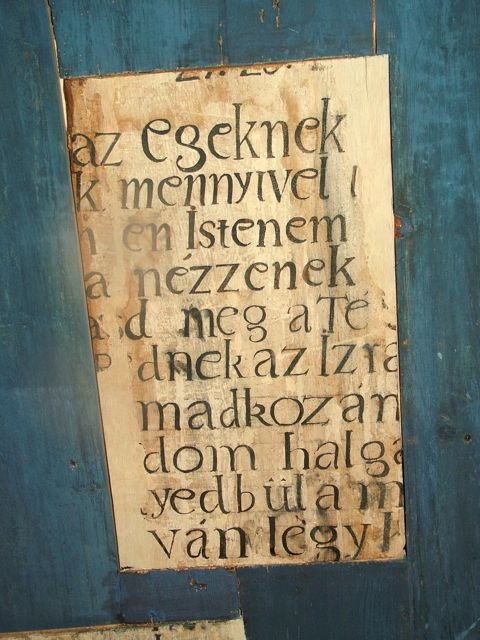 az egeknek
k mennyıvel
en Istenem
a nézzenek
ásd meg a Te
dnek az Izra
madkozán
dom halga
yedbül a m
ván légy k